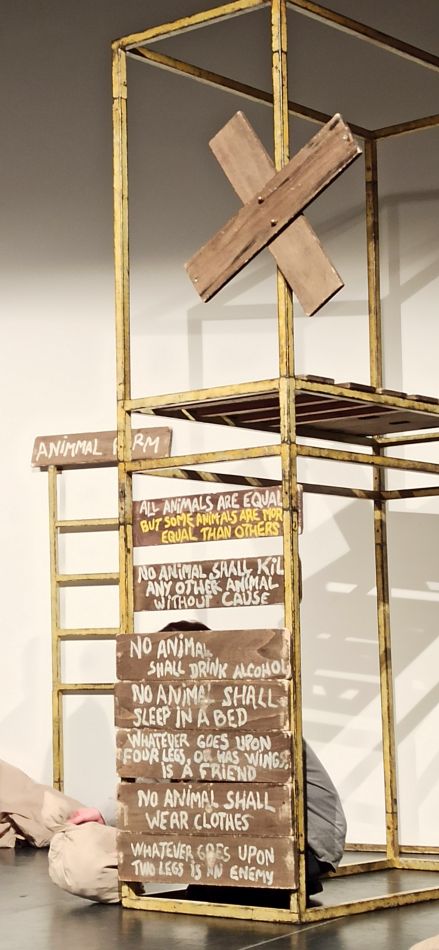 ANiMMAL F RM
ALL ANIMALS ARE EQUAL
BUT SOME ANIMALS ARE MOR
EQUAL THAN OTHERS
NO ANIMAL SHALL KIL
ANY OTHER ANIMAL
WITHOUT CAUSE
NO ANIMAL
SHALL DRINK ALCOHOL
NO ANIMAL SHALL
SLEEP IN A BED
WHATEVER GOES UPON
FOUR LEGS, OR HAS WINGS
IS A FRIEND
NO ANIMAL SHALL
WEAR CLOTHES
WHATEVER GOES UPON
TWO LEGS IS AN ENEMY